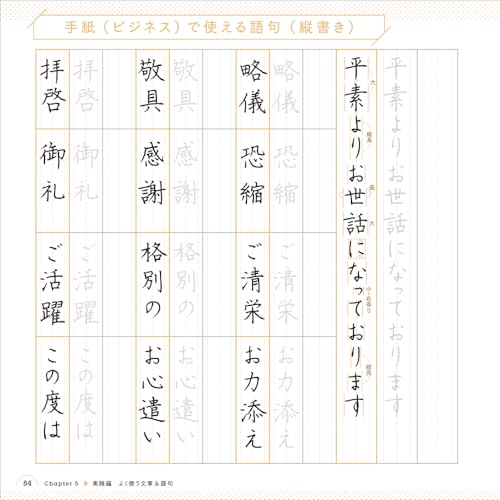 手紙（ビジネス）で使える語句（縦書き）
平素よりお世話になっております
平素よりお世話になっております
大
縦長
大
小・右寄り
縦長
略儀 恐縮 ご清栄 お力添え
略儀 恐縮 ご清栄 お力添え
敬具 感謝 格別の お心遣い
敬具 感謝 格別の お心遣い
拝啓 御礼 ご活躍 この度は
拝啓 御礼 ご活躍 この度は
84 Chapter 5 ▶ 実践編 よく使う文章&語句